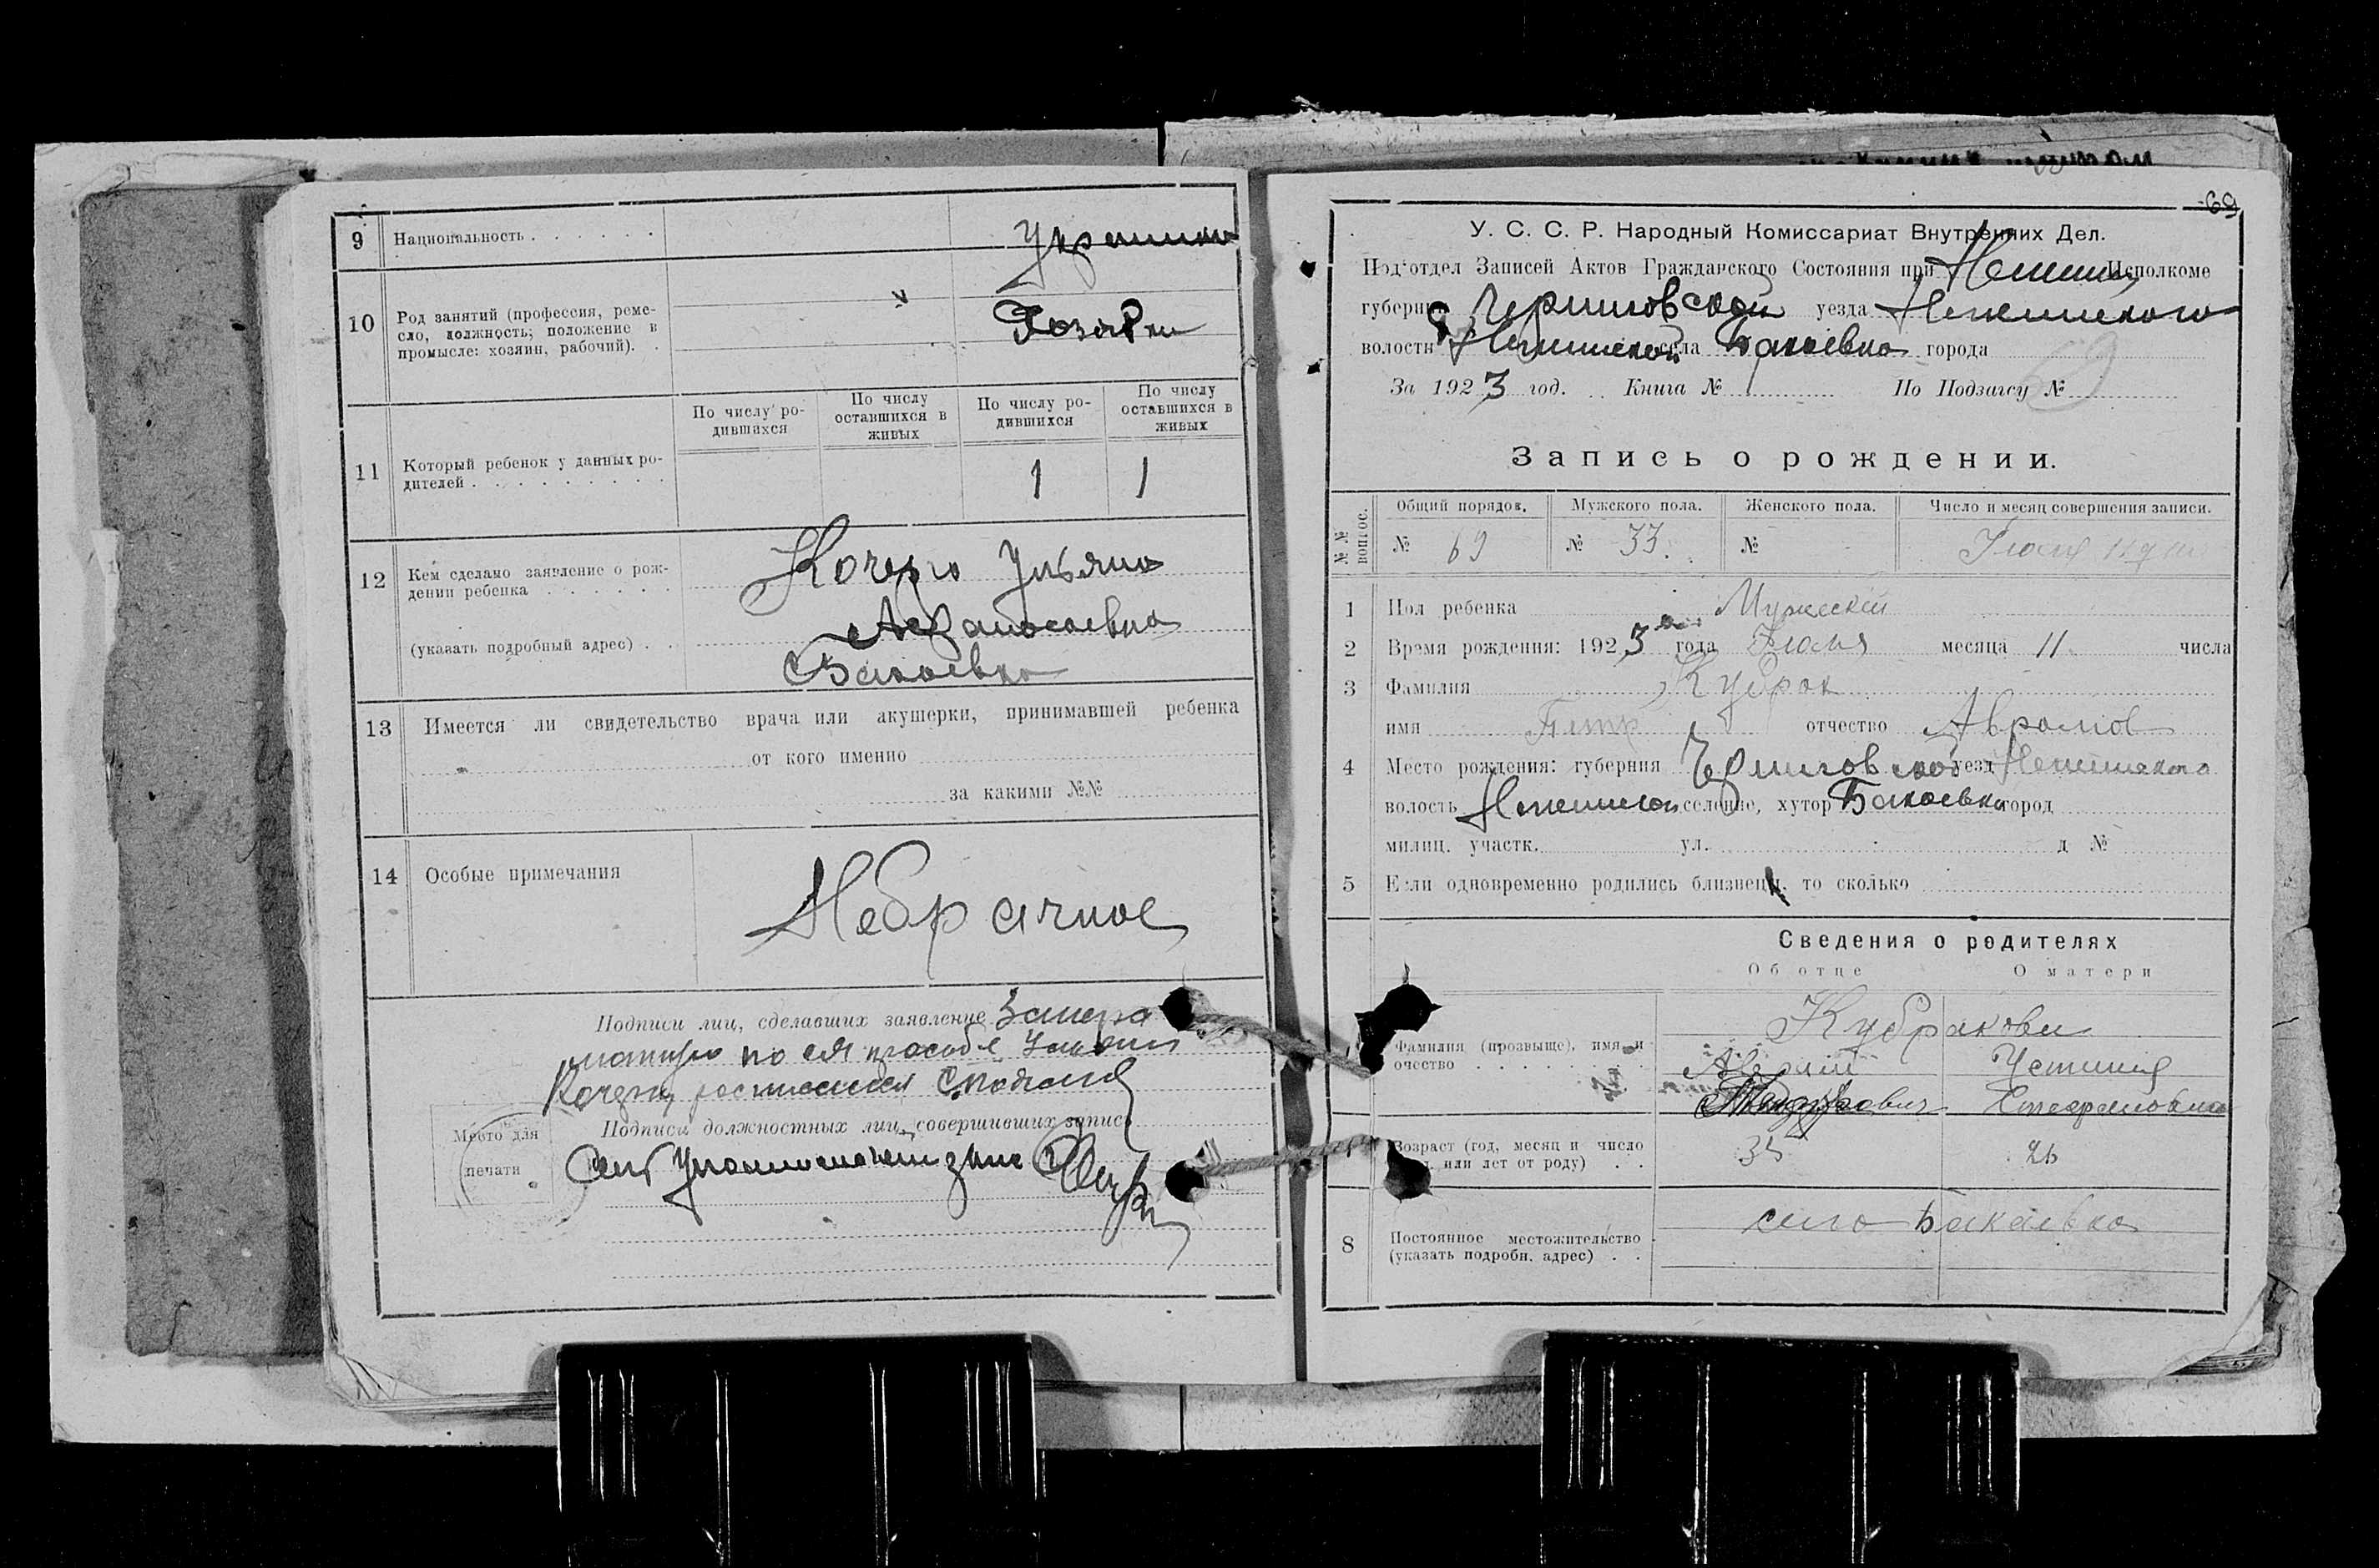 9 Национальность
Украинка
10 Род занятий (профессия, реме-
сло, должность; положение в
промысле: хозяин, рабочий).
11 Который ребенок у данных ро-
дителей
По числу ро-
дившихся
По числу
оставшихся в
живых
По числу ро-
дившихся
По числу
оставшихся в
живых
1 1
12 Кем сделано заявление о рож-
дении ребенка
(указать подробный адрес)
Ульяна
Бакаевка
13 Имеется ли свидетельство врача или акушерки, принимавшей ребенка
от кого именно
за какими №№
14 Особые примечания
Небрачное
Подписи лиц, сделавших заявление
по ея прозьбе
Подписи должностных лиц, совершивших запись
Место для
печати
69
У. С. С. Р. Народный Комиссариат Внутренних Дел.
Под'отдел Записей Актов Гражданского Состояния при Исполкоме
губернии Черниговской уезда Неженского
волости села Бакаевка города
За 1923 год. Книга № По Подзагсу №
Запись о рождении.
№№ вопрос.
Общий порядов. Мужского пола. Женского пола. Число и месяц совершения записи.
№ 69 № 33. №
1 Пол ребенка Мужеский
2 Время рождения: 1923 года Июля месяца 11 числа
3 Фамилия Кубрак
имя Петр отчество Аврамов
4 Место рождения: губерния Черниговской уезд Неженского
волость селение, хутор Бакаевка город
милиц. участк. ул. д №
5 Если одновременно родились близнецы, то сколько
Сведения о родителях
Об отце О матери
Фамилия (прозвыще), имя и
очество
Кубракови
Устиния
Возраст (год, месяц и число
или лет от роду)
35 26
8 Постоянное местожительство
(указать подробн. адрес)
село Бакаевка